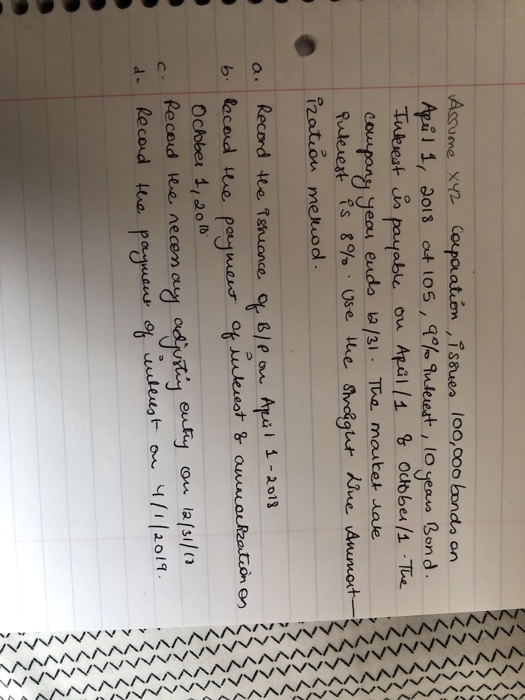 Assume XYZ Corporation, issues 100,000 bonds on
April 1, 2018 at 105, 9% interest, 10 years Bond.
Interest is payable on April/1 & October/1. The
company year ends 12/31. The market rate
interest is 8%. Use the straight line Ammort-
ization method.
a. Record the issuance of B/P on April 1-2018
b. Record the payment of interest & ammortization on
October 1, 2018
c. Record the necessary adjusting entry on 12/31/18
d. Record the payment of interest on 4/1/2019.